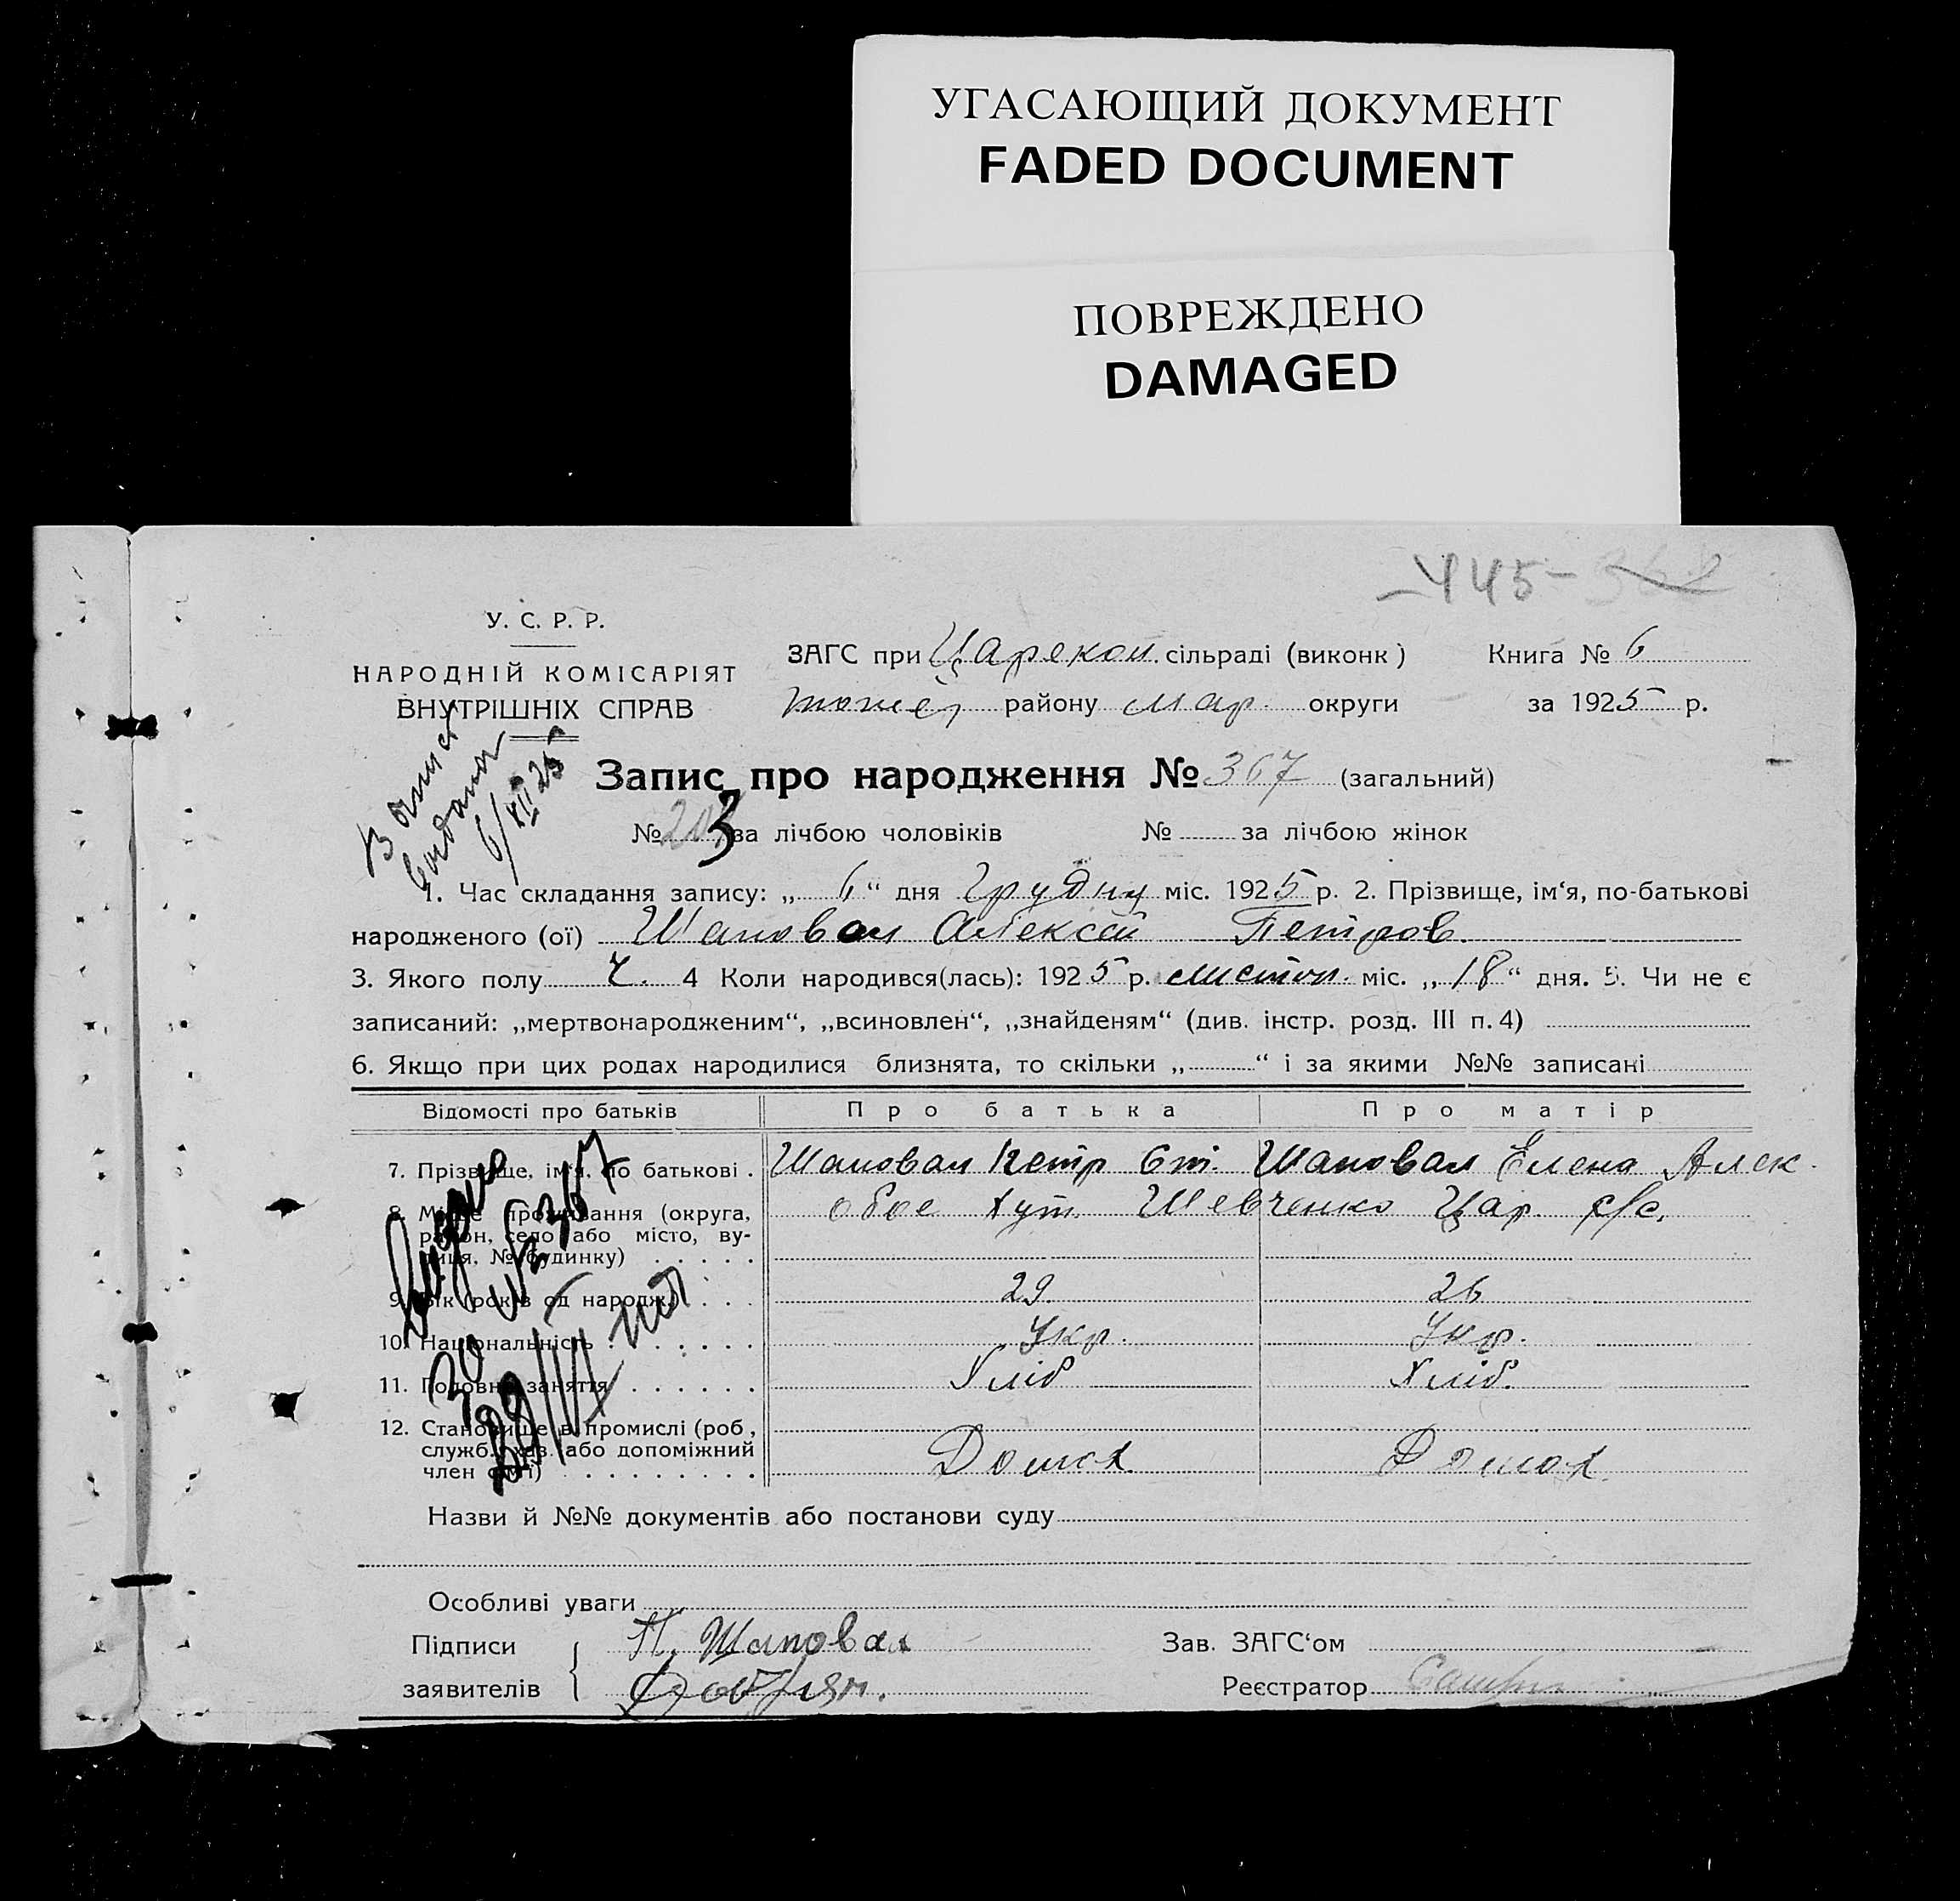 УГАСАЮЩИЙ ДОКУМЕНТ
FADED DOCUMENT
ПОВРЕЖДЕНО
DAMAGED
445-
У. С. Р. Р.
НАРОДНІЙ КОМІСАРІЯТ
ВНУТРІШНІХ СПРАВ
ЗАГС при Царекон. сільраді (виконк) Книга № 6
району Мар. округи за 1925 р.
6/XII 25
Запис про народження № 367 (загальний)
№ за лічбою чоловіків № за лічбою жінок
1. Час складання запису: „6“ дня Грудня міс. 1925 р. 2. Прізвище, ім‘я, по-батькові
народженого (ої) Шаповал Алексей Петров.
3. Якого полу Ч. 4 Коли народився(лась): 1925 р. листоп. міс. „18“ дня. 5. Чи не є
записаний: „мертвонародженим“, „всиновлен“, „знайденям“ (див. інстр. розд. III п. 4)
6. Якщо при цих родах народилися близнята, то скільки „ “ і за якими №№ записані
Відомості про батьків Про батька Про матір
7. Прізвище, ім‘я, по батькові . Шаповал Петр Ст. Шаповал Елена Алек.
8. Місце проживання (округа, обое хут. Шевченко Цар. с/с.
район, село або місто, ву-
лиця, № будинку)
9. Вік (років од народж.) 29. 26
10. Національність Укр. Укр.
11. Головне заняття Хліб Хліб.
12. Становище в промислі (роб.,
служб., хаз. або допоміжний Домох. Домох.
член сім‘ї)
Назви й №№ документів або постанови суду
Особливі уваги
Підписи П. Шаповал Зав. ЗАГС‘ом
заявителів Реєстратор